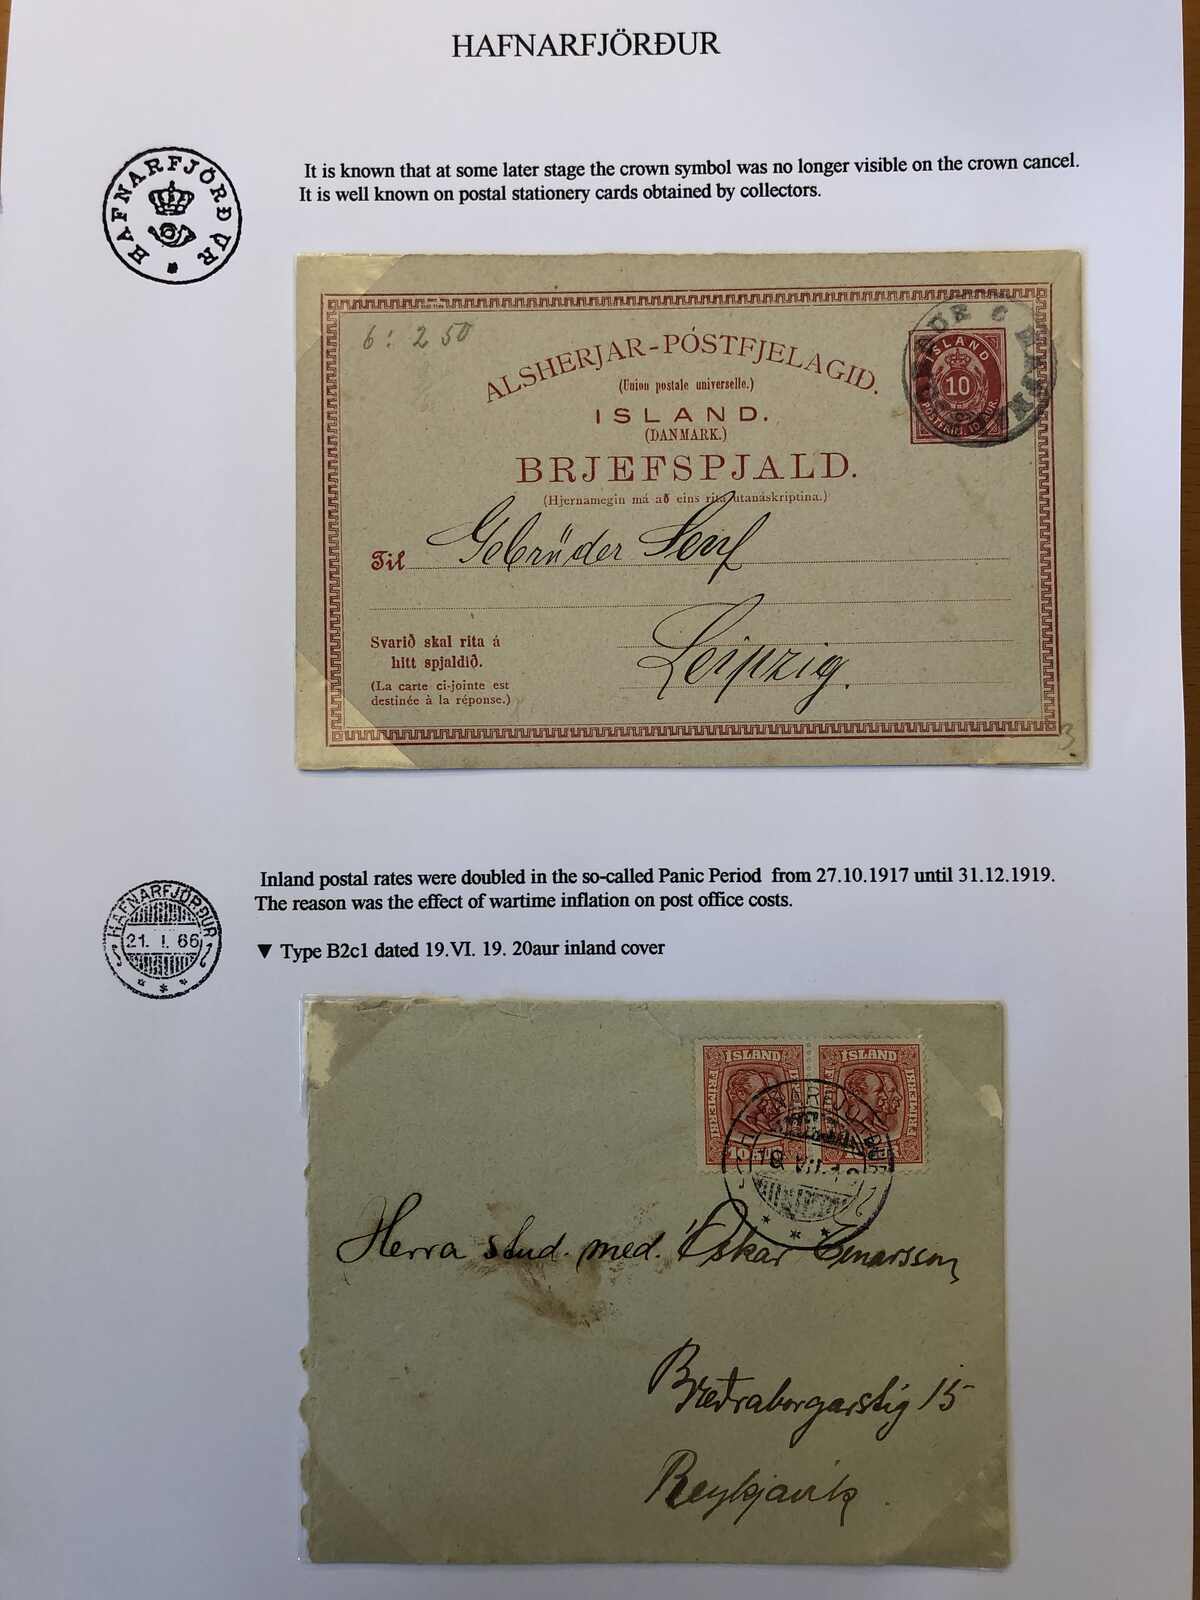 HAFNARFJÖRÐUR
HAFNARFJÖRÐUR
It is known that at some later stage the crown symbol was no longer visible on the crown cancel.
It is well known on postal stationery cards obtained by collectors.
6: 2 50
ALSHERJAR-PÓSTFJELAGIÐ.
(Union postale universelle.)
ISLAND.
(DANMARK.)
BRJEFSPJALD.
(Hjernamegin má að eins rita utanáskriptina.)
ISLAND
10
POSTFRIM. 10 AUR.
Til Gebrüder Senf
Leipzig.
Svarið skal rita á
hitt spjaldið.
(La carte ci-jointe est
destinée à la réponse.)
3
Inland postal rates were doubled in the so-called Panic Period from 27.10.1917 until 31.12.1919.
The reason was the effect of wartime inflation on post office costs.
HAFNARFJÖRÐUR
21. I. 66
▼ Type B2c1 dated 19.VI. 19. 20aur inland cover
ÍSLAND
ÍSLAND
Herra stud. med. Óskar Einarsson,
Bræðraborgarstíg 15
Reykjavík.